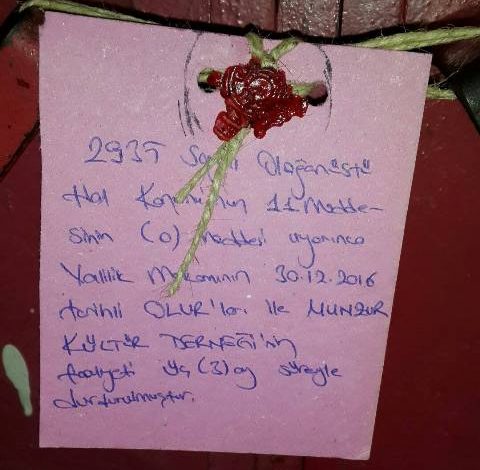 2935 Sayılı Olağanüstü
Hal Kanununun 11. Madde-
sinin (o) maddesi uyarınca
Valilik Makamının 30.12.2016
tarihli OLUR'ları ile MUNZUR
KÜLTÜR DERNEĞİ'nin
faaliyeti üç (3) ay süreyle
durdurulmuştur.